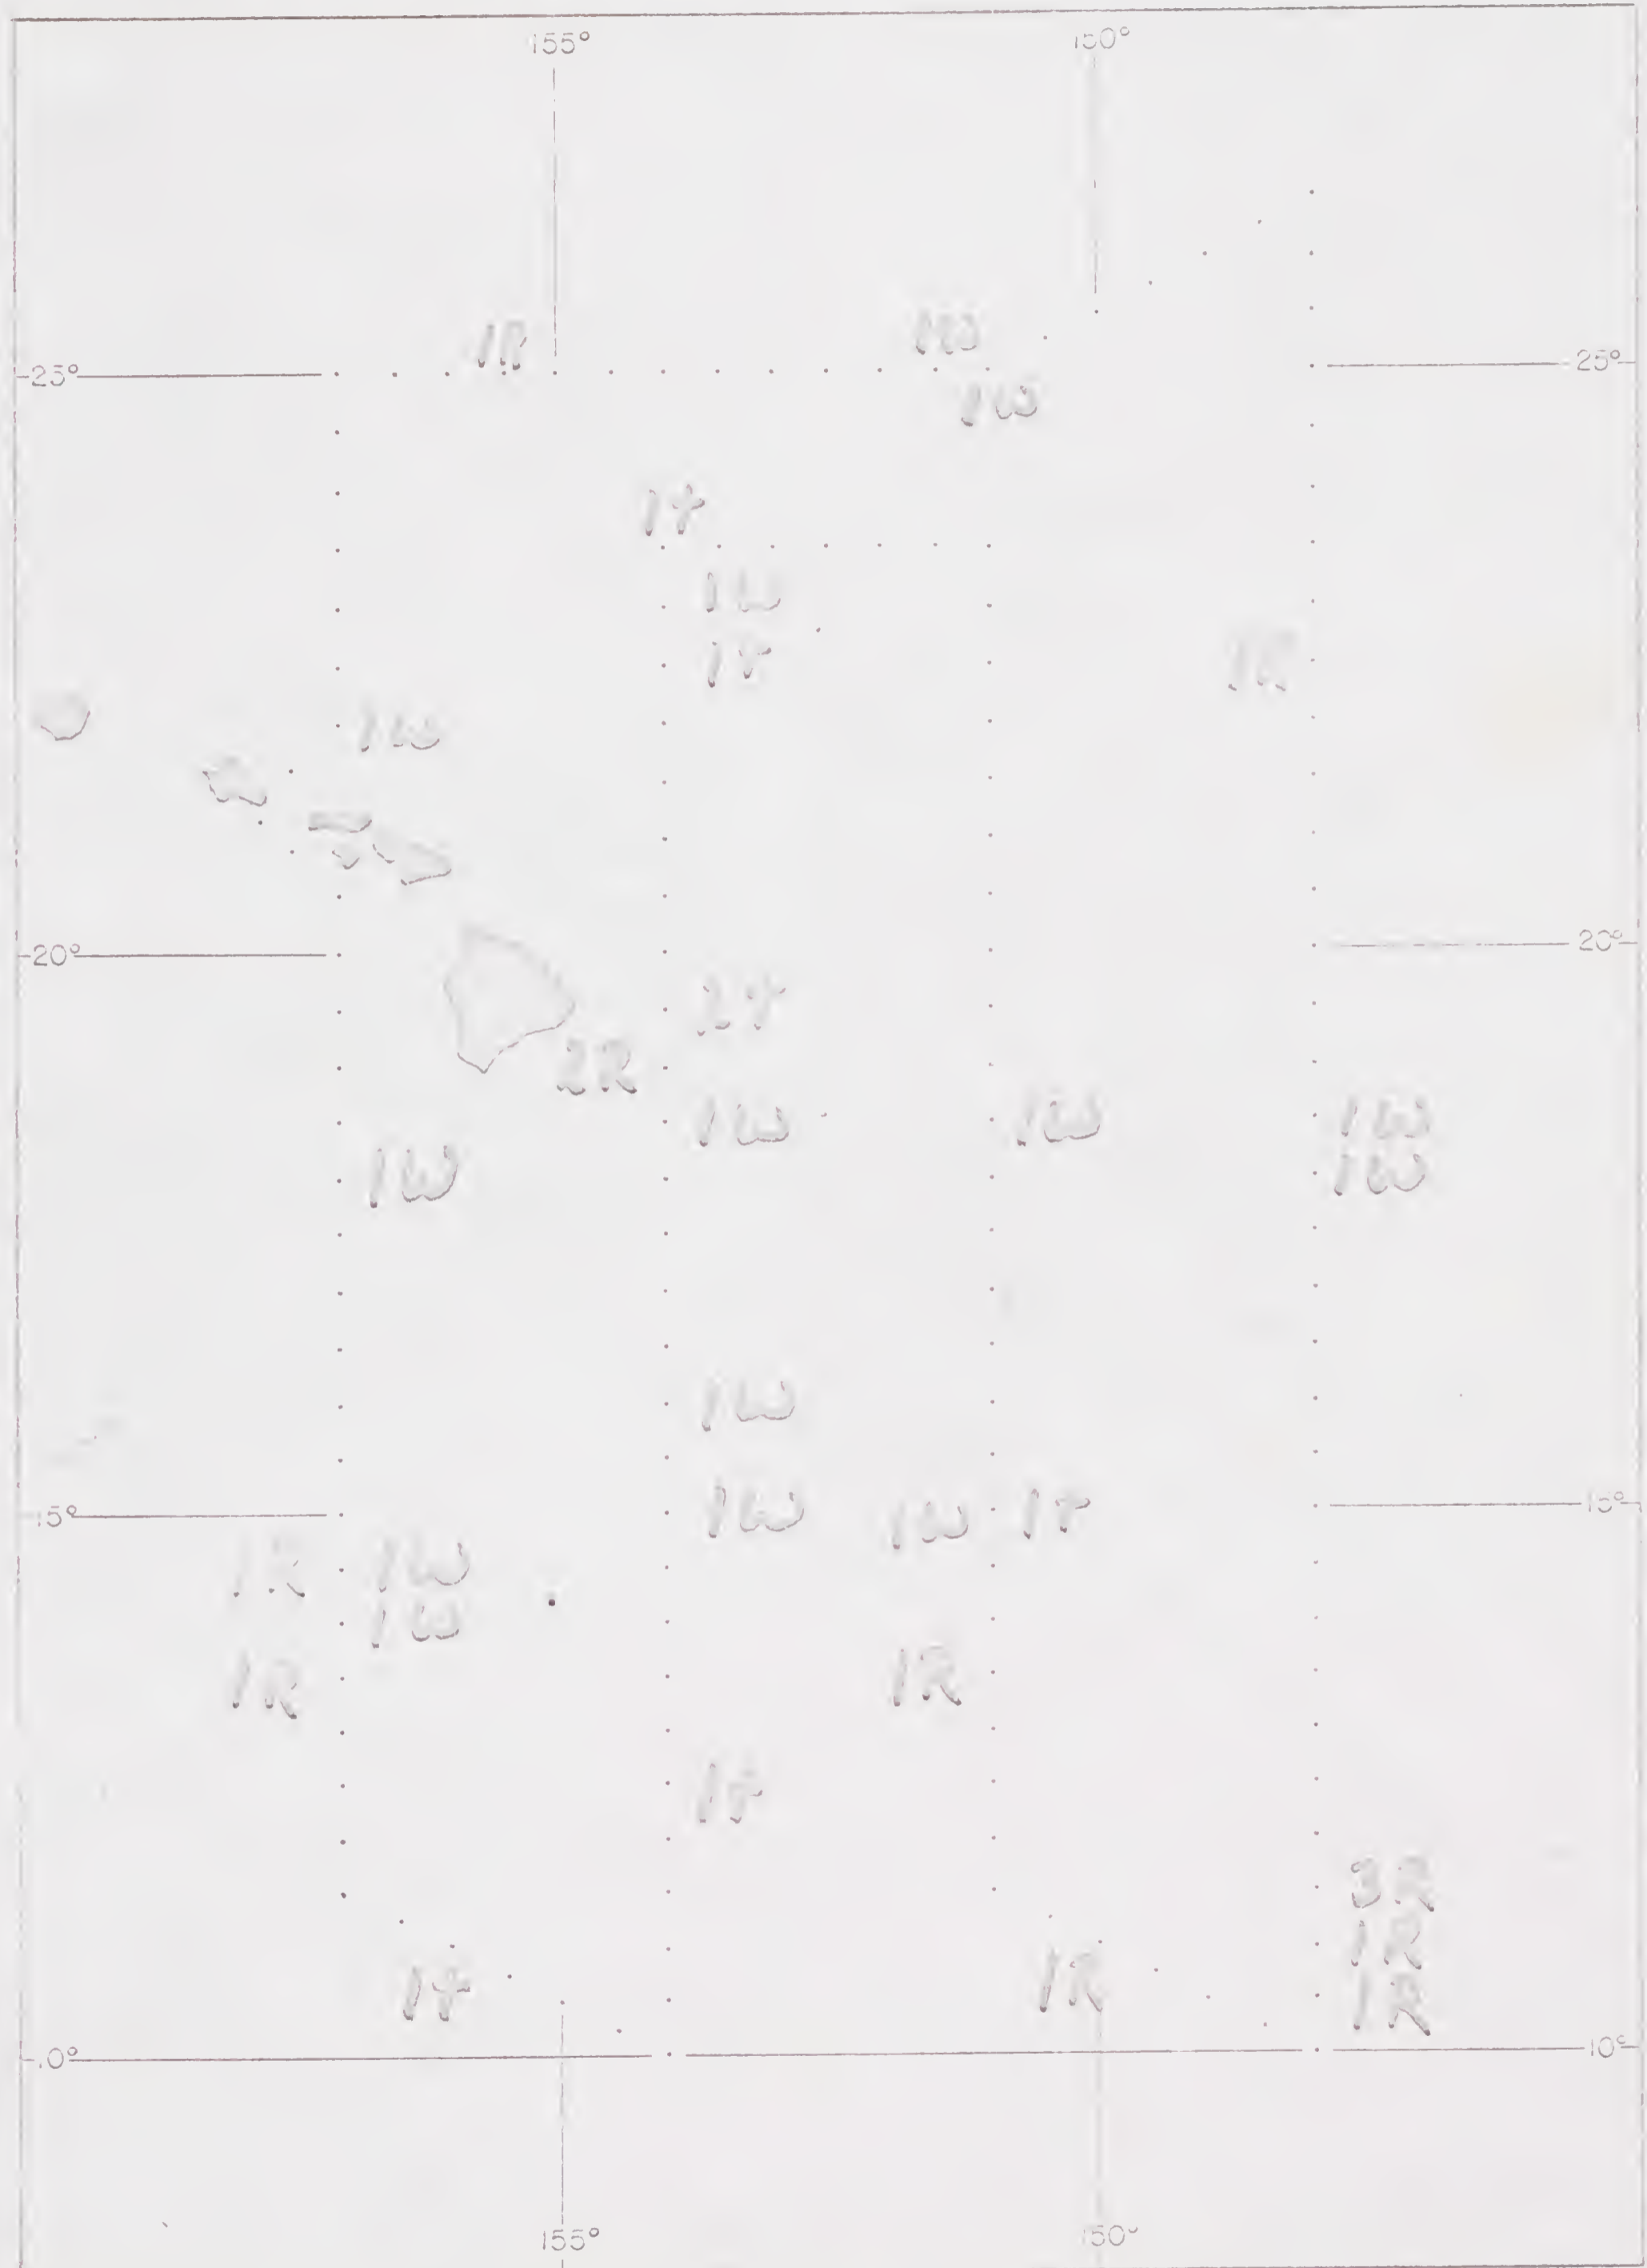 155° 150°
1R 1W
25° 25°
1W
1t
1W
1t 1R
1W
20° 20°
2t
2R
1W 1W 1W
1W 1W
1W
15° 1W 1W 1t 15°
1R 1W
1W
1R 1R
1t
3R
1R
1t 1R 1R
10° 10°
155° 150°